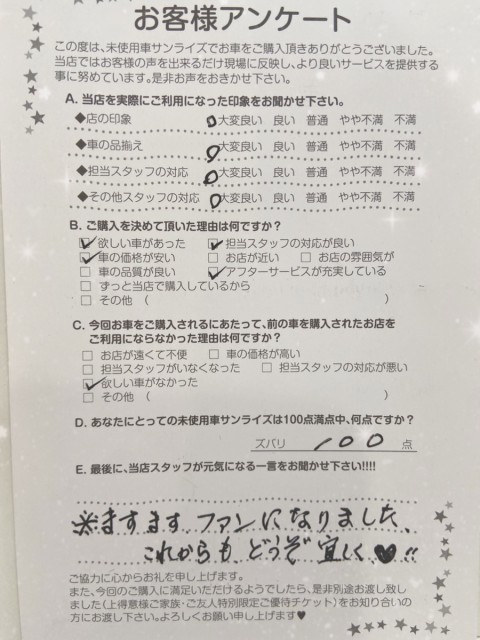 お客様アンケート
この度は、未使用車サンライズでお車をご購入頂きありがとうございました。
当店ではお客様の声を出来るだけ現場に反映し、より良いサービスを提供する
事に努めています。是非お声をおきかせ下さい。
A. 当店を実際にご利用になった印象をお聞かせ下さい。
◆店の印象 大変良い 良い 普通 やや不満 不満
◆車の品揃え 大変良い 良い 普通 やや不満 不満
◆担当スタッフの対応 大変良い 良い 普通 やや不満 不満
◆その他スタッフの対応 大変良い 良い 普通 やや不満 不満
B. ご購入を決めて頂いた理由は何ですか?
☑欲しい車があった ☑担当スタッフの対応が良い
☑車の価格が安い □お店が近い □お店の雰囲気が
□車の品質が良い ☑アフターサービスが充実している
□ずっと当店で購入しているから
□その他( )
C. 今回お車をご購入されるにあたって、前の車を購入されたお店を
ご利用にならなかった理由は何ですか?
□お店が遠くて不便 □車の価格が高い
□担当スタッフがいなくなった □担当スタッフの対応が悪い
☑欲しい車がなかった
□その他( )
D. あなたにとっての未使用車サンライズは100点満点中、何点ですか?
ズバリ 100 点
E. 最後に、当店スタッフが元気になる一言をお聞かせ下さい!!!!
※ますます ファンになりました、
これからも どうぞ 宜しく♥!!
ご協力に心からお礼を申し上げます。
また、今回のご購入に満足いただけるようでしたら、是非別途お渡し致し
ました(上得意様ご家族・ご友人特別限定ご優待チケット)をお知り合いの
方にお渡し下さいませ。よろしくお願い申し上げます♥